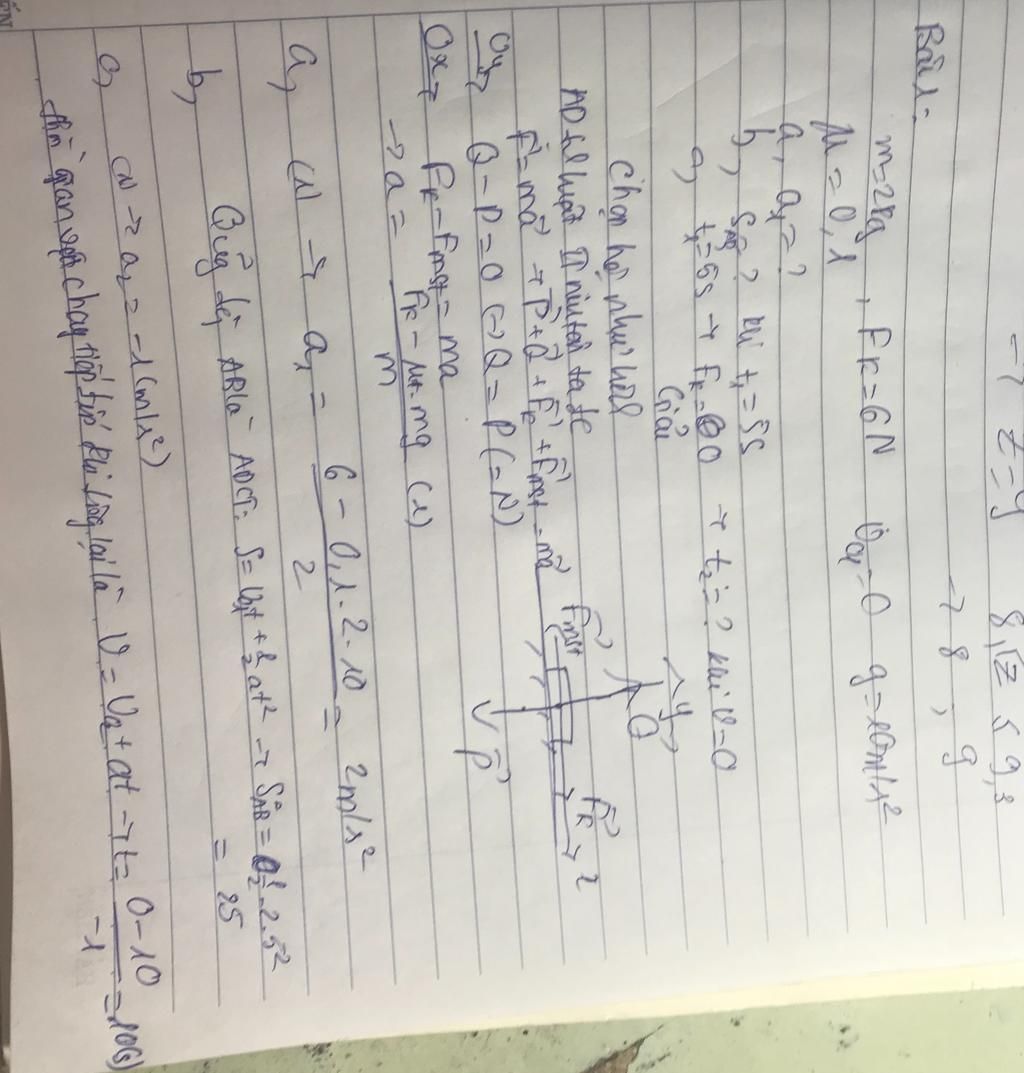 → z = y
8√z ≤ 9,8
→ 8, 9
Bài 1:
m=2kg, Fk=6N v01=0 g=10m/s²
μ=0,1
a, a1=?
b, SAB? khi t1=5s
c, t1=5s → Fk=0 → t2=? khi v=0
Giải
Chọn hệ như hình
AD định luật II niu tơn ta đc
F→=ma→ → P→+Q→+Fk→+Fmst→=ma→
Oy, Q-P=0 (=) Q=P(=N)
Ox, Fk-Fmst=ma
→ a = (Fk - μt.mg)/m (1)
Q→
y
Fmst→
Fk→
P→
a, (1) → a1 = (6-0,1.2.10)/2 = 2m/s²
b, Quãng đg AB là ADCT: S=v01t+½at² → SAB=½.2.5²
= 25
c, (1) → a2=-1(m/s²)
thời gian vật chạy tiếp tới khi dừng lại là v=v02+at → t=(0-10)/-1=10(s)